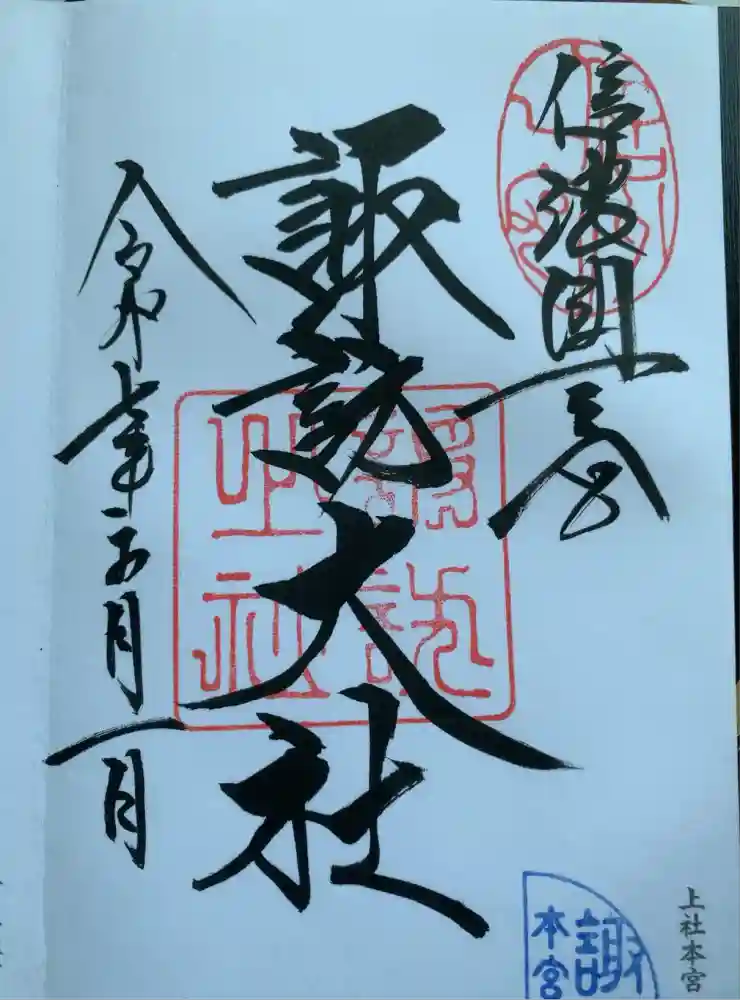 信濃國一之宮
諏訪大社
諏訪
之社
令和七年五月一日
上社本宮
諏
本宮